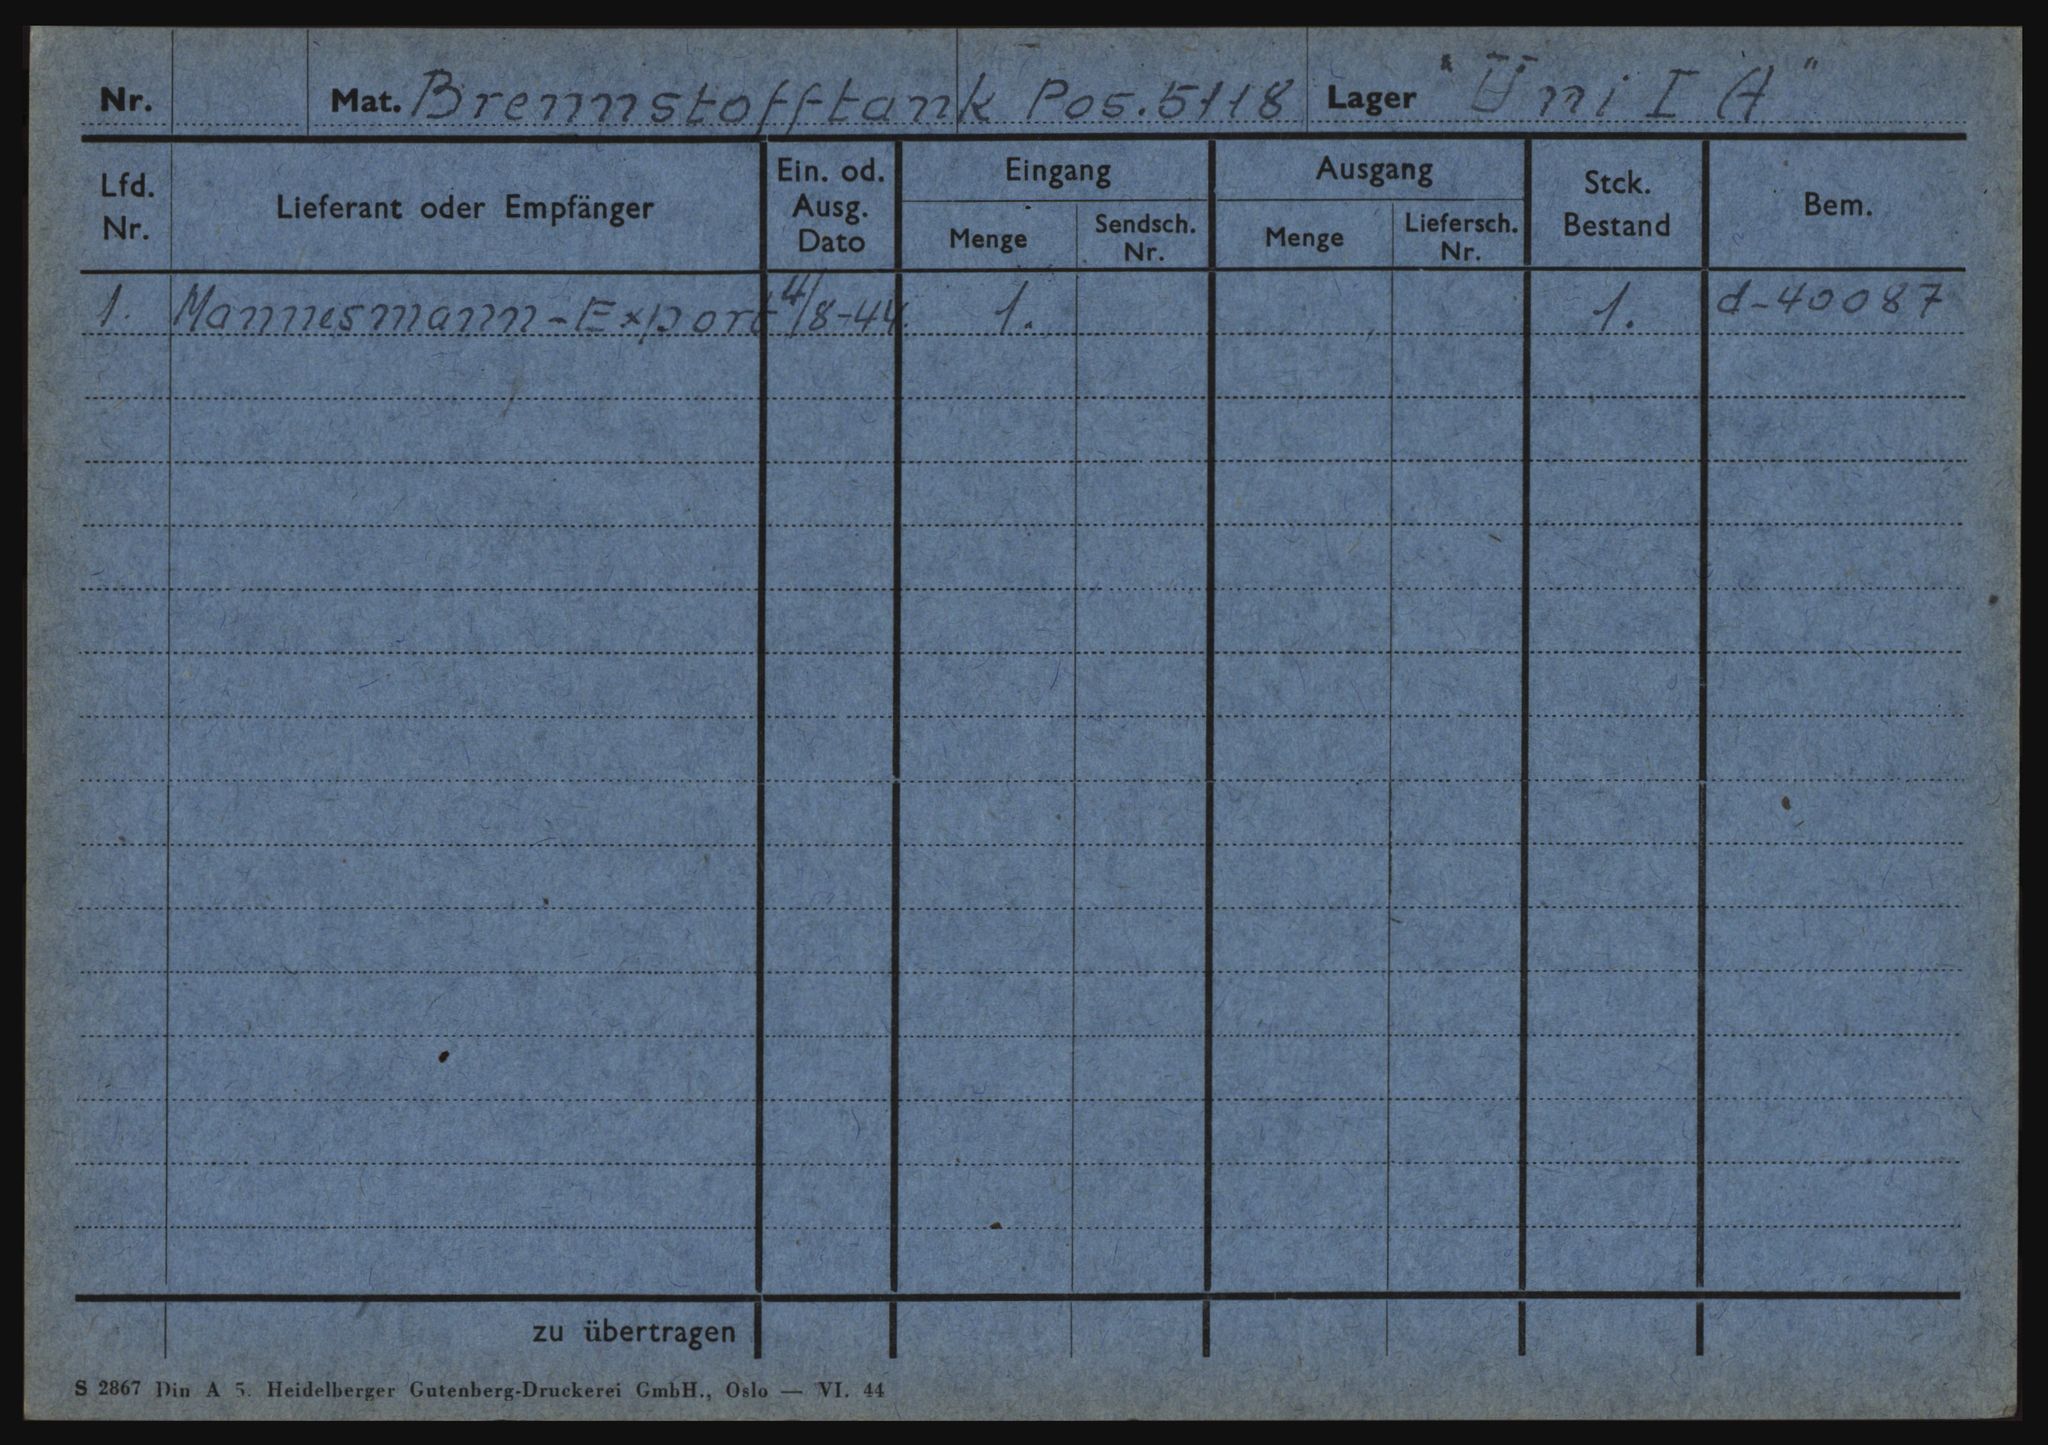 Nr. Mat. Brennstofftank Pos. 5118 Lager "Uni I A"
Lfd. Nr. Lieferant oder Empfänger Ein. od. Ausg. Dato Eingang Menge Sendsch. Nr. Ausgang Menge Liefersch. Nr. Stck. Bestand Bem.
1. Mannesmann-Export 4/8-44. 1. 1. d-40087
zu übertragen
S 2867 Din A 5. Heidelberger Gutenberg-Druckerei GmbH., Oslo — VI. 44